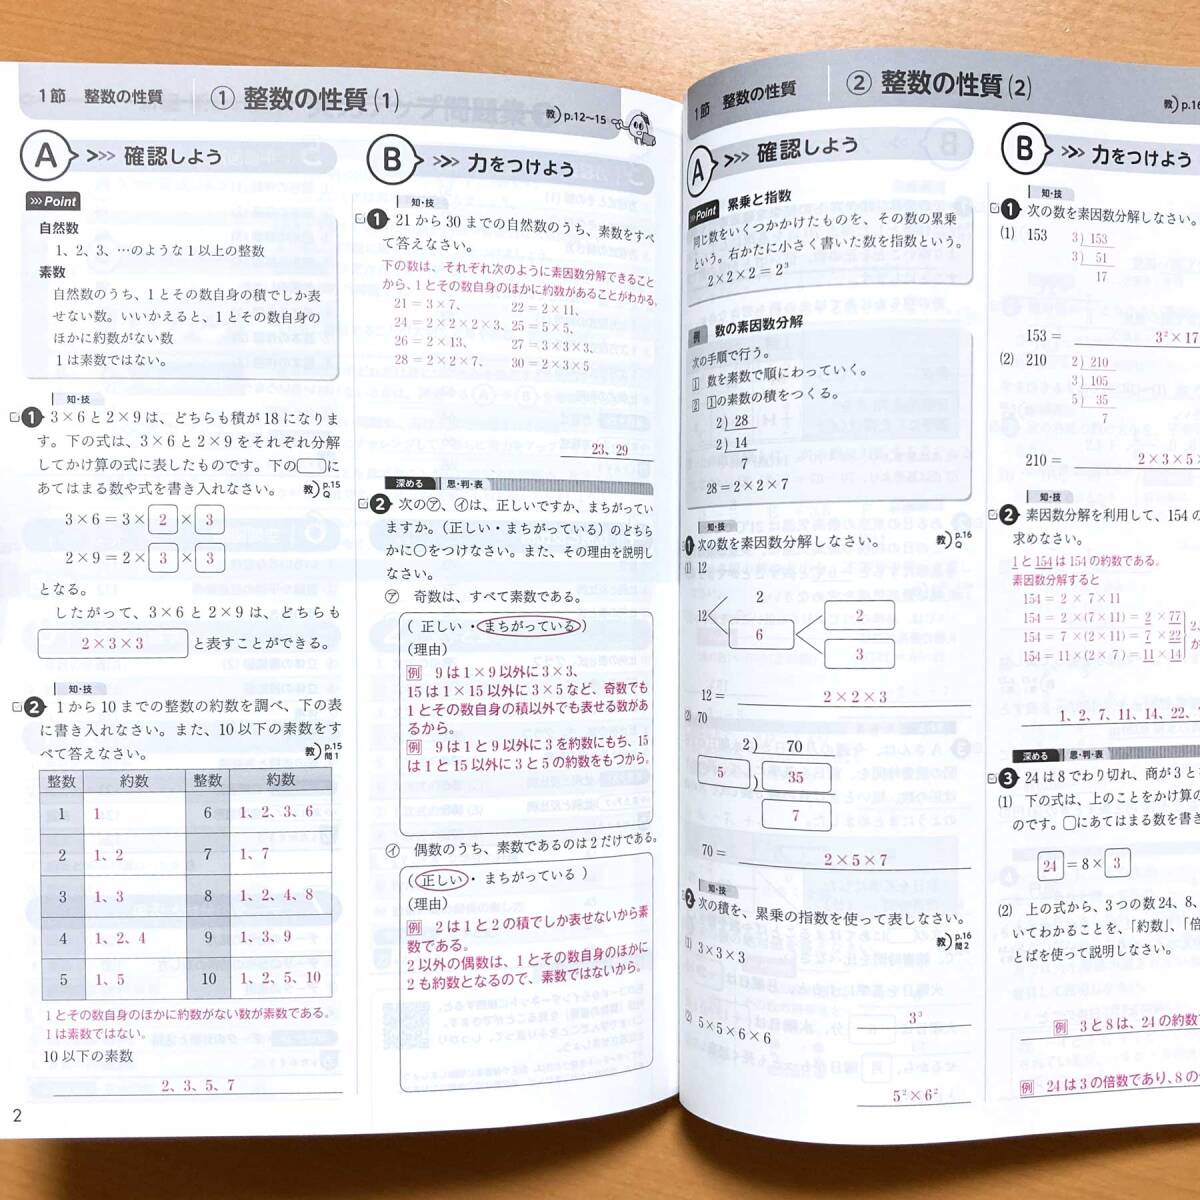 1節 整数の性質
① 整数の性質(1)
教 p.12〜15
A >>> 確認しよう
>>> Point
自然数
1、2、3、…のような1以上の整数
素数
自然数のうち、1とその数自身の積でしか表
せない数。いいかえると、1とその数自身の
ほかに約数がない数
1は素数ではない。
知・技
1 3×6と2×9は、どちらも積が18になりま
す。下の式は、3×6と2×9をそれぞれ分解
してかけ算の式に表したものです。下の□に
あてはまる数や式を書き入れなさい。 教 p.15 Q
3×6=3× 2 × 3
2×9=2× 3 × 3
となる。
したがって、3×6と2×9は、どちらも
2×3×3 と表すことができる。
知・技
2 1から10までの整数の約数を調べ、下の表
に書き入れなさい。また、10以下の素数をす
べて答えなさい。 教 p.15 問1
整数 約数 整数 約数
1 1 6 1、2、3、6
2 1、2 7 1、7
3 1、3 8 1、2、4、8
4 1、2、4 9 1、3、9
5 1、5 10 1、2、5、10
1とその数自身のほかに約数がない数が素数である。
1は素数ではない。
10以下の素数
2、3、5、7
2
B >>> 力をつけよう
知・技
1 21から30までの自然数のうち、素数をすべ
て答えなさい。
下の数は、それぞれ次のように素因数分解できること
から、1とその数自身のほかに約数があることがわかる。
21=3×7、 22=2×11、
24=2×2×2×3、25=5×5、
26=2×13、 27=3×3×3、
28=2×2×7、 30=2×3×5
23、29
深める 思・判・表
2 次の㋐、㋑は、正しいですか、まちがってい
ますか。(正しい・まちがっている)のどちら
かに○をつけなさい。また、その理由を説明し
なさい。
㋐ 奇数は、すべて素数である。
( 正しい ・ まちがっている )
(理由)
例 9は1×9以外に3×3、
15は1×15以外に3×5など、奇数でも
1とその数自身の積以外でも表せる数があ
るから。
例 9は1と9以外に3を約数にもち、15
は1と15以外に3と5の約数をもつから。
㋑ 偶数のうち、素数であるのは2だけである。
( 正しい ・ まちがっている )
(理由)
例 2は1と2の積でしか表せないから素
数である。
2以外の偶数は、1とその数自身のほかに
2も約数となるので、素数ではないから。
1節 整数の性質
② 整数の性質(2)
教 p.16
A >>> 確認しよう
Point 累乗と指数
同じ数をいくつかかけたものを、その数の累乗
という。右かたに小さく書いた数を指数という。
2×2×2=2³
例 数の素因数分解
次の手順で行う。
1 数を素数で順にわっていく。
2 1の素数の積をつくる。
2) 28
2) 14
7
28=2×2×7
知・技
1 次の数を素因数分解しなさい。 教 p.16 Q
(1) 12
2
12 6 2
3
12= 2×2×3
(2) 70
2) 70
5 35
7
70= 2×5×7
知・技
2 次の積を、累乗の指数を使って表しなさい。
教 p.16 問2
(1) 3×3×3
3³
(2) 5×5×6×6
5²×6²
B >>> 力をつけよう
知・技
1 次の数を素因数分解しなさい。
(1) 153 3) 153
3) 51
17
153= 3²×17
(2) 210 2) 210
3) 105
5) 35
7
210= 2×3×5×
知・技
2 素因数分解を利用して、154の
求めなさい。
1と154は154の約数である。
素因数分解すると
154=2×7×11
154=2×(7×11)=2×77
154=7×(2×11)=7×22
154=11×(2×7)=11×14
1、2、7、11、14、22、
深める 思・判・表
3 24は8でわり切れ、商が3と
(1) 下の式は、上のことをかけ算の
のです。□にあてはまる数を書き
24 =8× 3
(2) 上の式から、3つの数24、8、
いてわかることを、「約数」、「倍
とばを使って説明しなさい。
例 3と8は、24の約数
例 24は3の倍数であり、8の